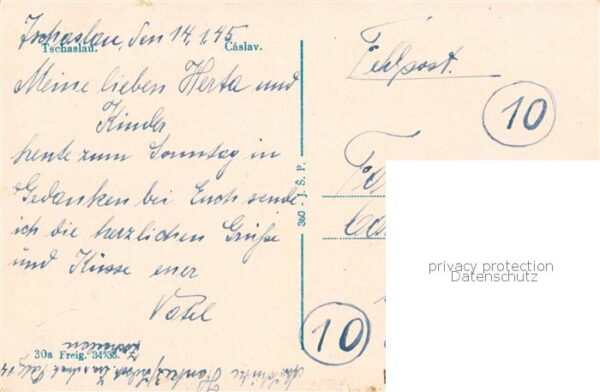 Tschaslau, den 14.1.45
Tschaslau. Čáslav.
Meine lieben Herta und
Kinder
heute zum Sonntag in
Gedanken bei Euch sende
ich die herzlichen Grüße
und Küsse euer
Vati
30a Freig. 34535.
360 - J. Š. P.
Feldpost.
10
10
privacy protection
Datenschutz